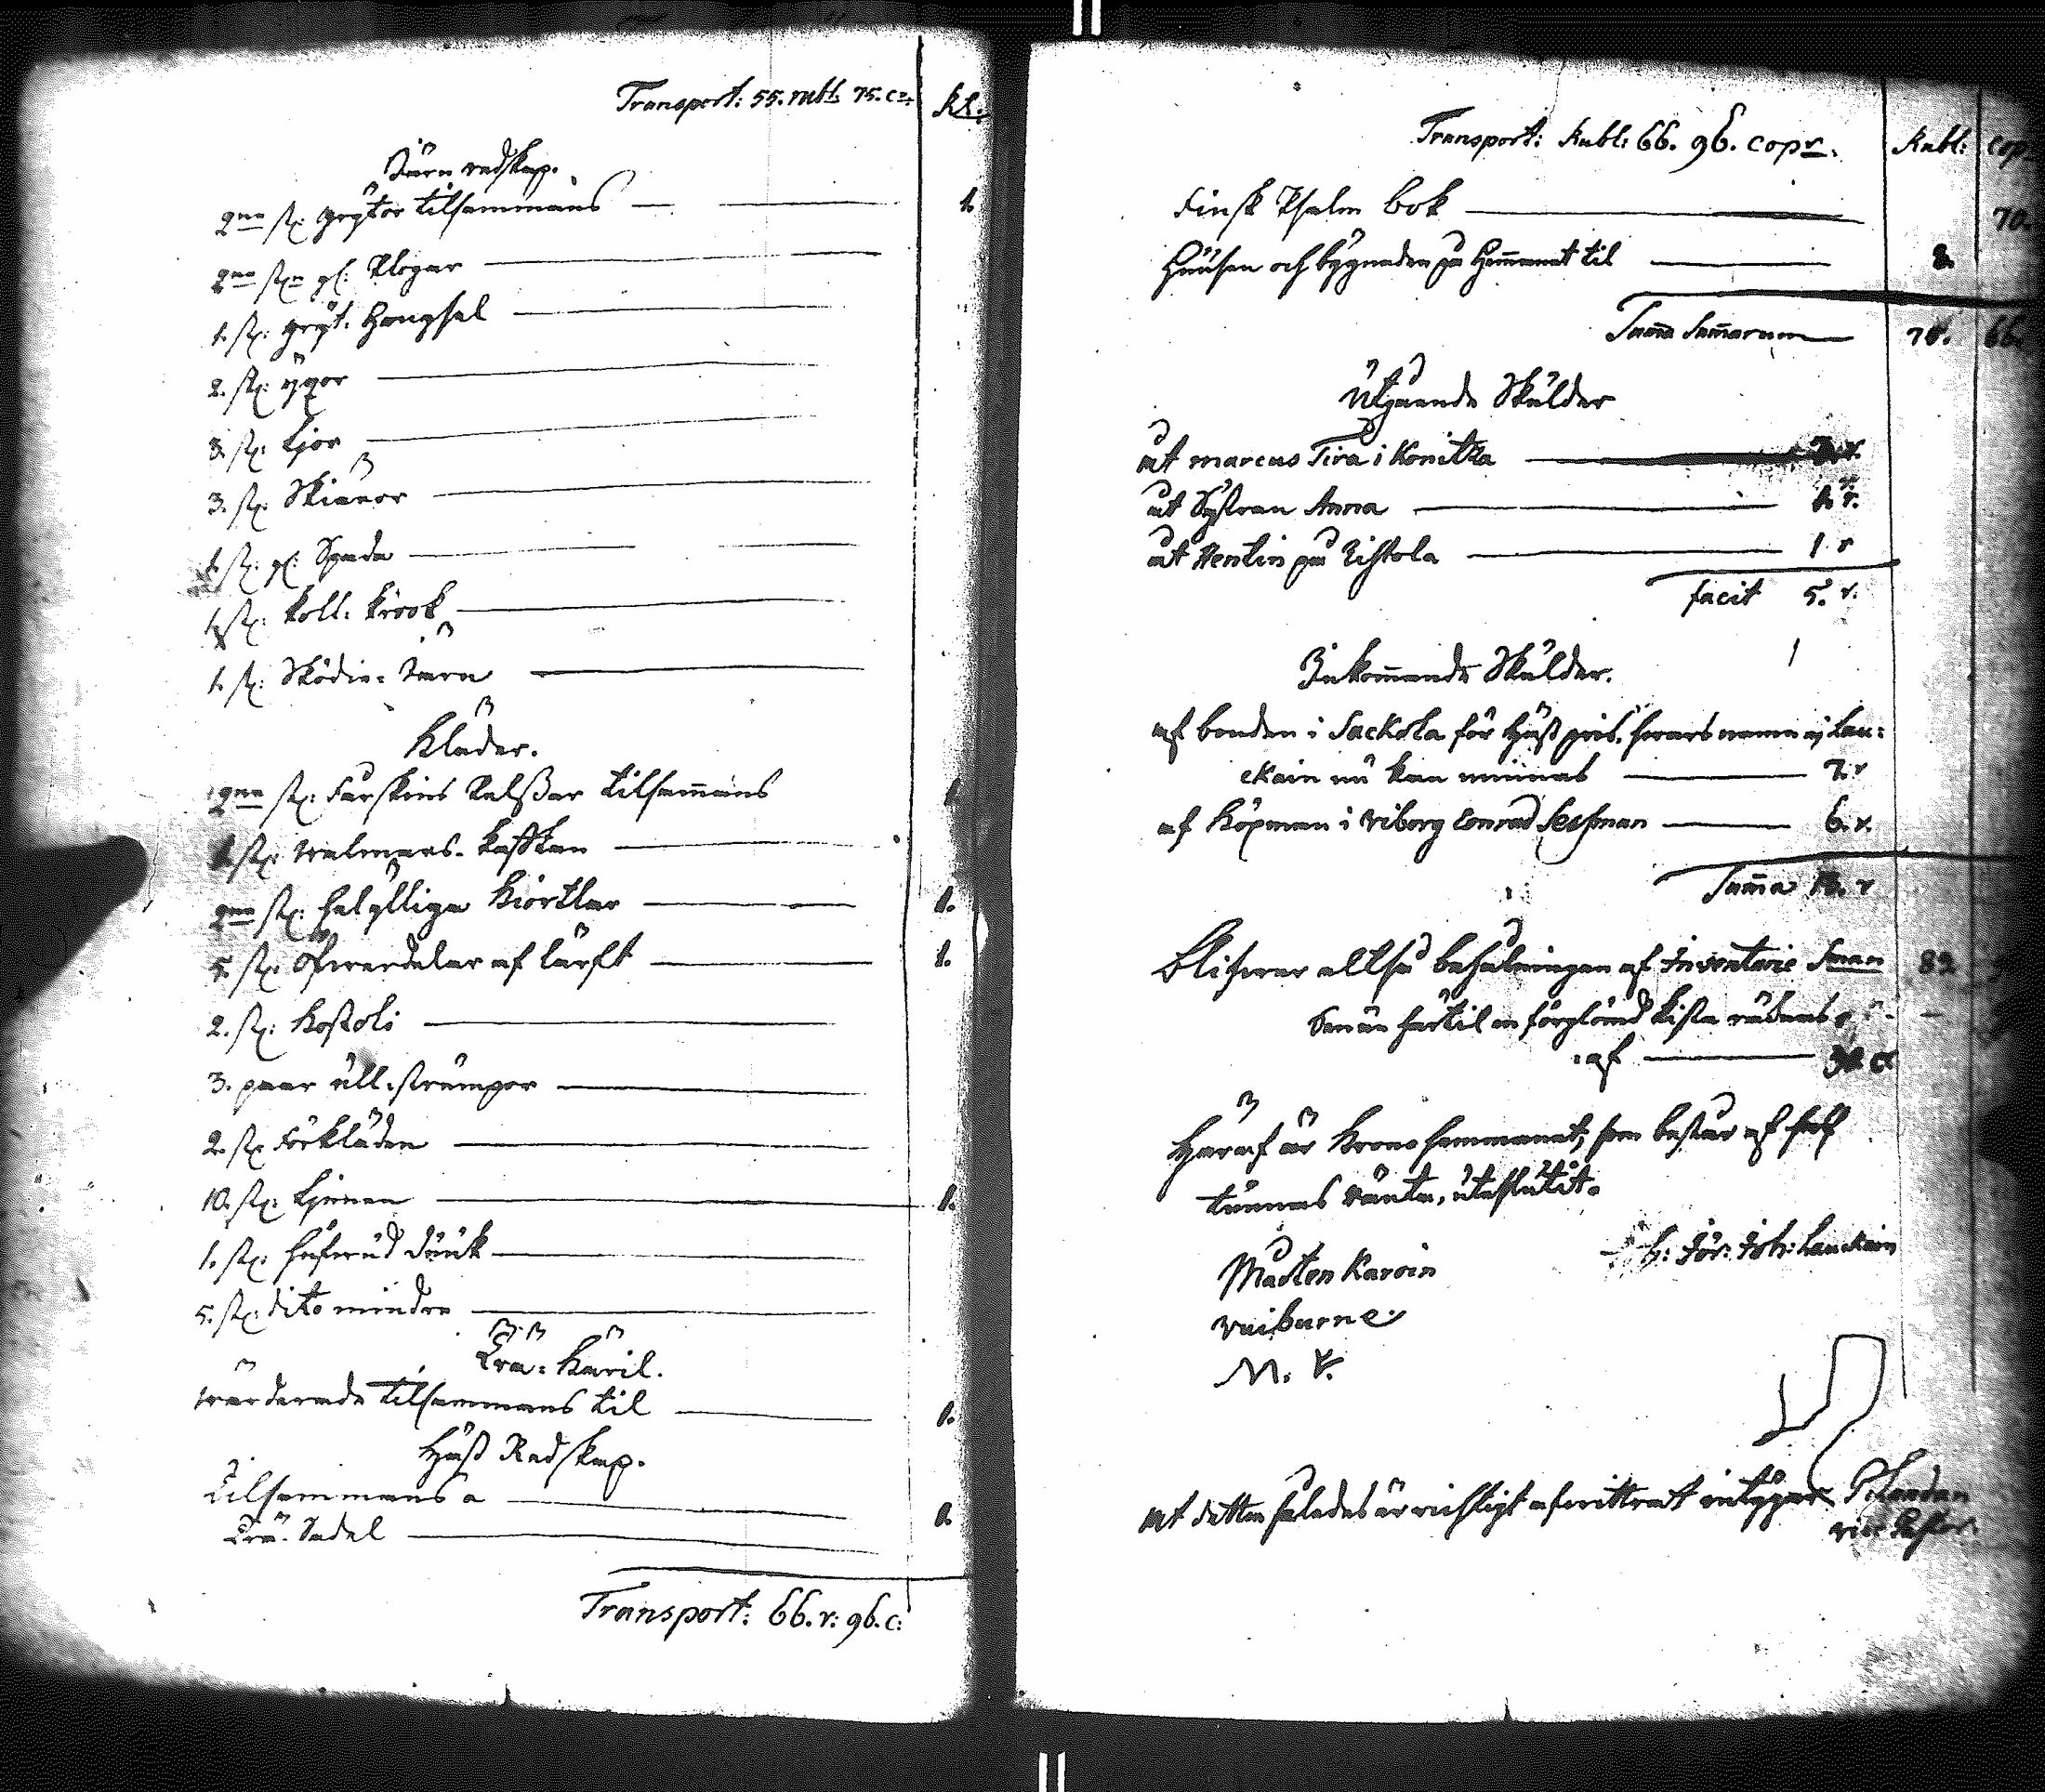 Transport: 55. rubl. 75. c: Rl:
Järn redskap.
2ne st: grÿtor tilsammans 1.
2ne st: gl: Plogar
1. st: grÿt. Hangsel
2. st: ÿxor
3. st: Ljor
3. st: Skiäror
1. st: gl: Spada
1. st: koll. krook
1. st: Sködie-Järn
Kläder.
2ne st: Fårskins Pelssar tilsam̅ans
1. st: walmars-kasttan
2ne st: halfÿlliga Kiortlar 1.
5. st: Öfwerdelar af lärft 1.
2. st: Kostoli
3. paar ull-strumpor
2. st: Förkläden
10. st: Linnen 1.
1. st: hufwud duuk
5. st: dito mindre
Trä-Käril.
wärderade tilsammans til 1.
Häst Redskap.
Tilsammans a
Trä-Sadel
Transport: 66. r: 96. c:
Transport: Rubl: 66. 96. copr. Rubl: cop
Finsk Psalm bok 70.
Huusen och bÿgnaden på Hem̅anet til 8.
Sum̅a Sum̅arum 75. 66.
Utgående Skulder
åt marcus Tira i Konitza 3. r.
åt Sÿstran Anna 1. r.
åt Hentin på Ristola 1 r
facit 5. r.
Inkom̅ande Skulder.
af bonden i Sackola för häst pris, hwars namn ej Lau-
ckain nu kan minnas 7. r
af Köpman i Wiborg Conrad Sessman 6. r.
Sum̅a 13. r
Blifwer altså behålningen af Inventarie Sman 82
Sen än härtil en förglömd kista
af 30. c.
Häraf är Krono hemmanet, som består af half
tunnas ränta, uteslutit.
Mårten Karoin
M. K.
Jör: Joh: Lauckain
at detta således är richtigt afwittrat intÿgar
vice Pastor.